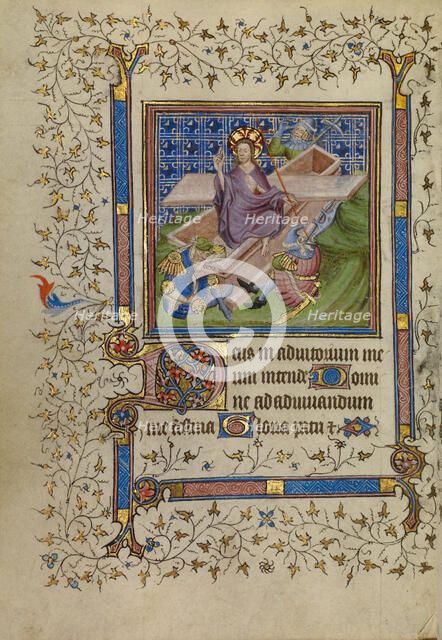 Heritage Heritage
Heritage Heritage
Heritage Heritage
Deus in adiutorium me
um intende Domi
ne ad adiuuandum
me festina Gloria patri et